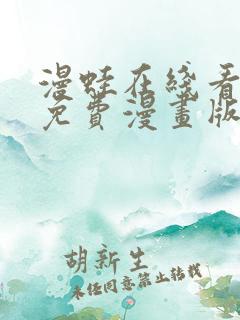 漫蛙在线看
免費漫畫版
胡新生
未经同意禁止转载